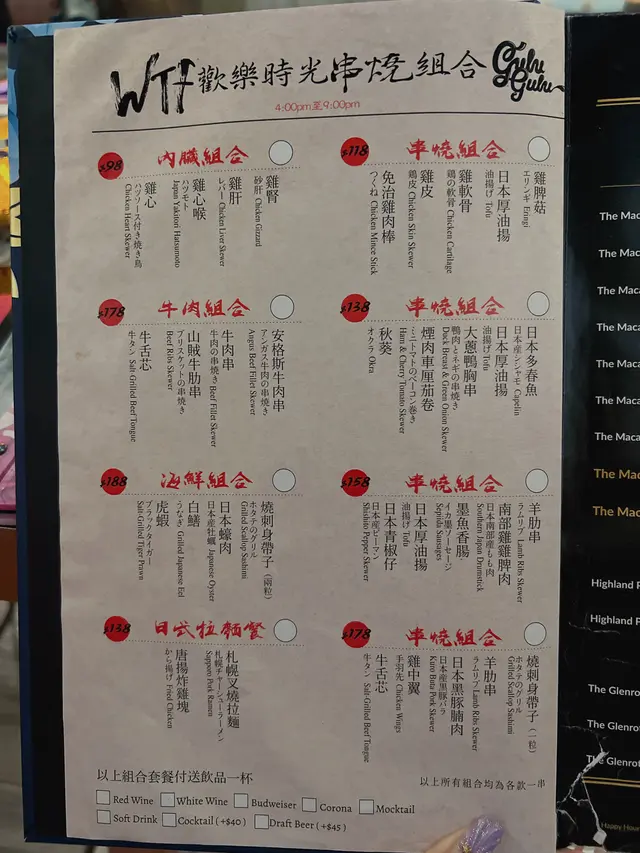 WTF 歡樂時光串燒組合 Gulu Gulu
4:00pm至9:00pm
$98 內臟組合
雞腎
砂肝 Chicken Gizzard
雞肝
レバー Chicken Liver Skewer
雞心喉
ハツモト
Japan Yakitori Hatsumoto
雞心
ハツソース付き焼き鳥
Chicken Heart Skewer
$118 串燒組合
雞脾菇
エリンギ Eringi
日本厚油揚
油揚げ Tofu
雞軟骨
鶏の軟骨 Chicken Cartilage
雞皮
鶏皮 Chicken Skin Skewer
免治雞肉棒
つくね Chicken Mince Stick
$178 牛肉組合
安格斯牛肉串
アンガス牛肉の串焼き
Angus Beef Fillet Skewer
牛肉串
牛肉の串焼き Beef Fillet Skewer
山賊牛肋串
ブリスケットの串焼き
Beef Ribs Skewer
牛舌芯
牛タン Salt Grilled Beef Tongue
$138 串燒組合
日本多春魚
日本産シシャモ Capelin
日本厚油揚
油揚げ Tofu
大蔥鴨胸串
鴨肉とネギの串焼き
Duck Breast & Green Onion Skewer
煙肉車厘茄卷
ミニトマトのベーコン巻き
Ham & Cherry Tomato Skewer
秋葵
オクラ Okra
$188 海鮮組合
燒刺身帶子（兩粒）
ホタテのグリル
Grilled Scallop Sashimi
日本蠔肉
日本産牡蠣 Japanese Oyster
白鱔
うなぎ Grilled Japanese Eel
虎蝦
ブラックタイガー
Salt-Grilled Tiger Prawn
$158 串燒組合
羊肋串
ラムリブ Lamb Ribs Skewer
南部雞雞脾肉
日本南部産もも肉
Southern Japan Drumstick
墨魚香腸
イカ墨ソーセージ
Sepiida Sausages
日本厚油揚
油揚げ Tofu
日本青椒仔
日本産ピーマン
Shishito Pepper Skewer
$138 日式拉麵餐
札幌叉燒拉麵
札幌チャーシューラーメン
Sapporo Pork Ramen
唐揚炸雞塊
から揚げ Fried Chicken
$178 串燒組合
燒刺身帶子（一粒）
ホタテのグリル
Grilled Scallop Sashimi
羊肋串
ラムリブ Lamb Ribs Skewer
日本黑豚腩肉
日本産黒豚バラ
Kuro Buta Pork Skewer
雞中翼
手羽先 Chicken Wings
牛舌芯
牛タン Salt-Grilled Beef Tongue
以上組合套餐付送飲品一杯
以上所有組合均為各款一串
Red Wine White Wine Budweiser Corona Mocktail
Soft Drink Cocktail (+$40) Draft Beer (+$45)
The Mac
The Mac
The Maca
The Maca
The Maca
The Maca
The Maca
The Mac
The Mac
Highland P
Highland P
The Glenro
The Glenrot
The Glenrot
Happy Hour